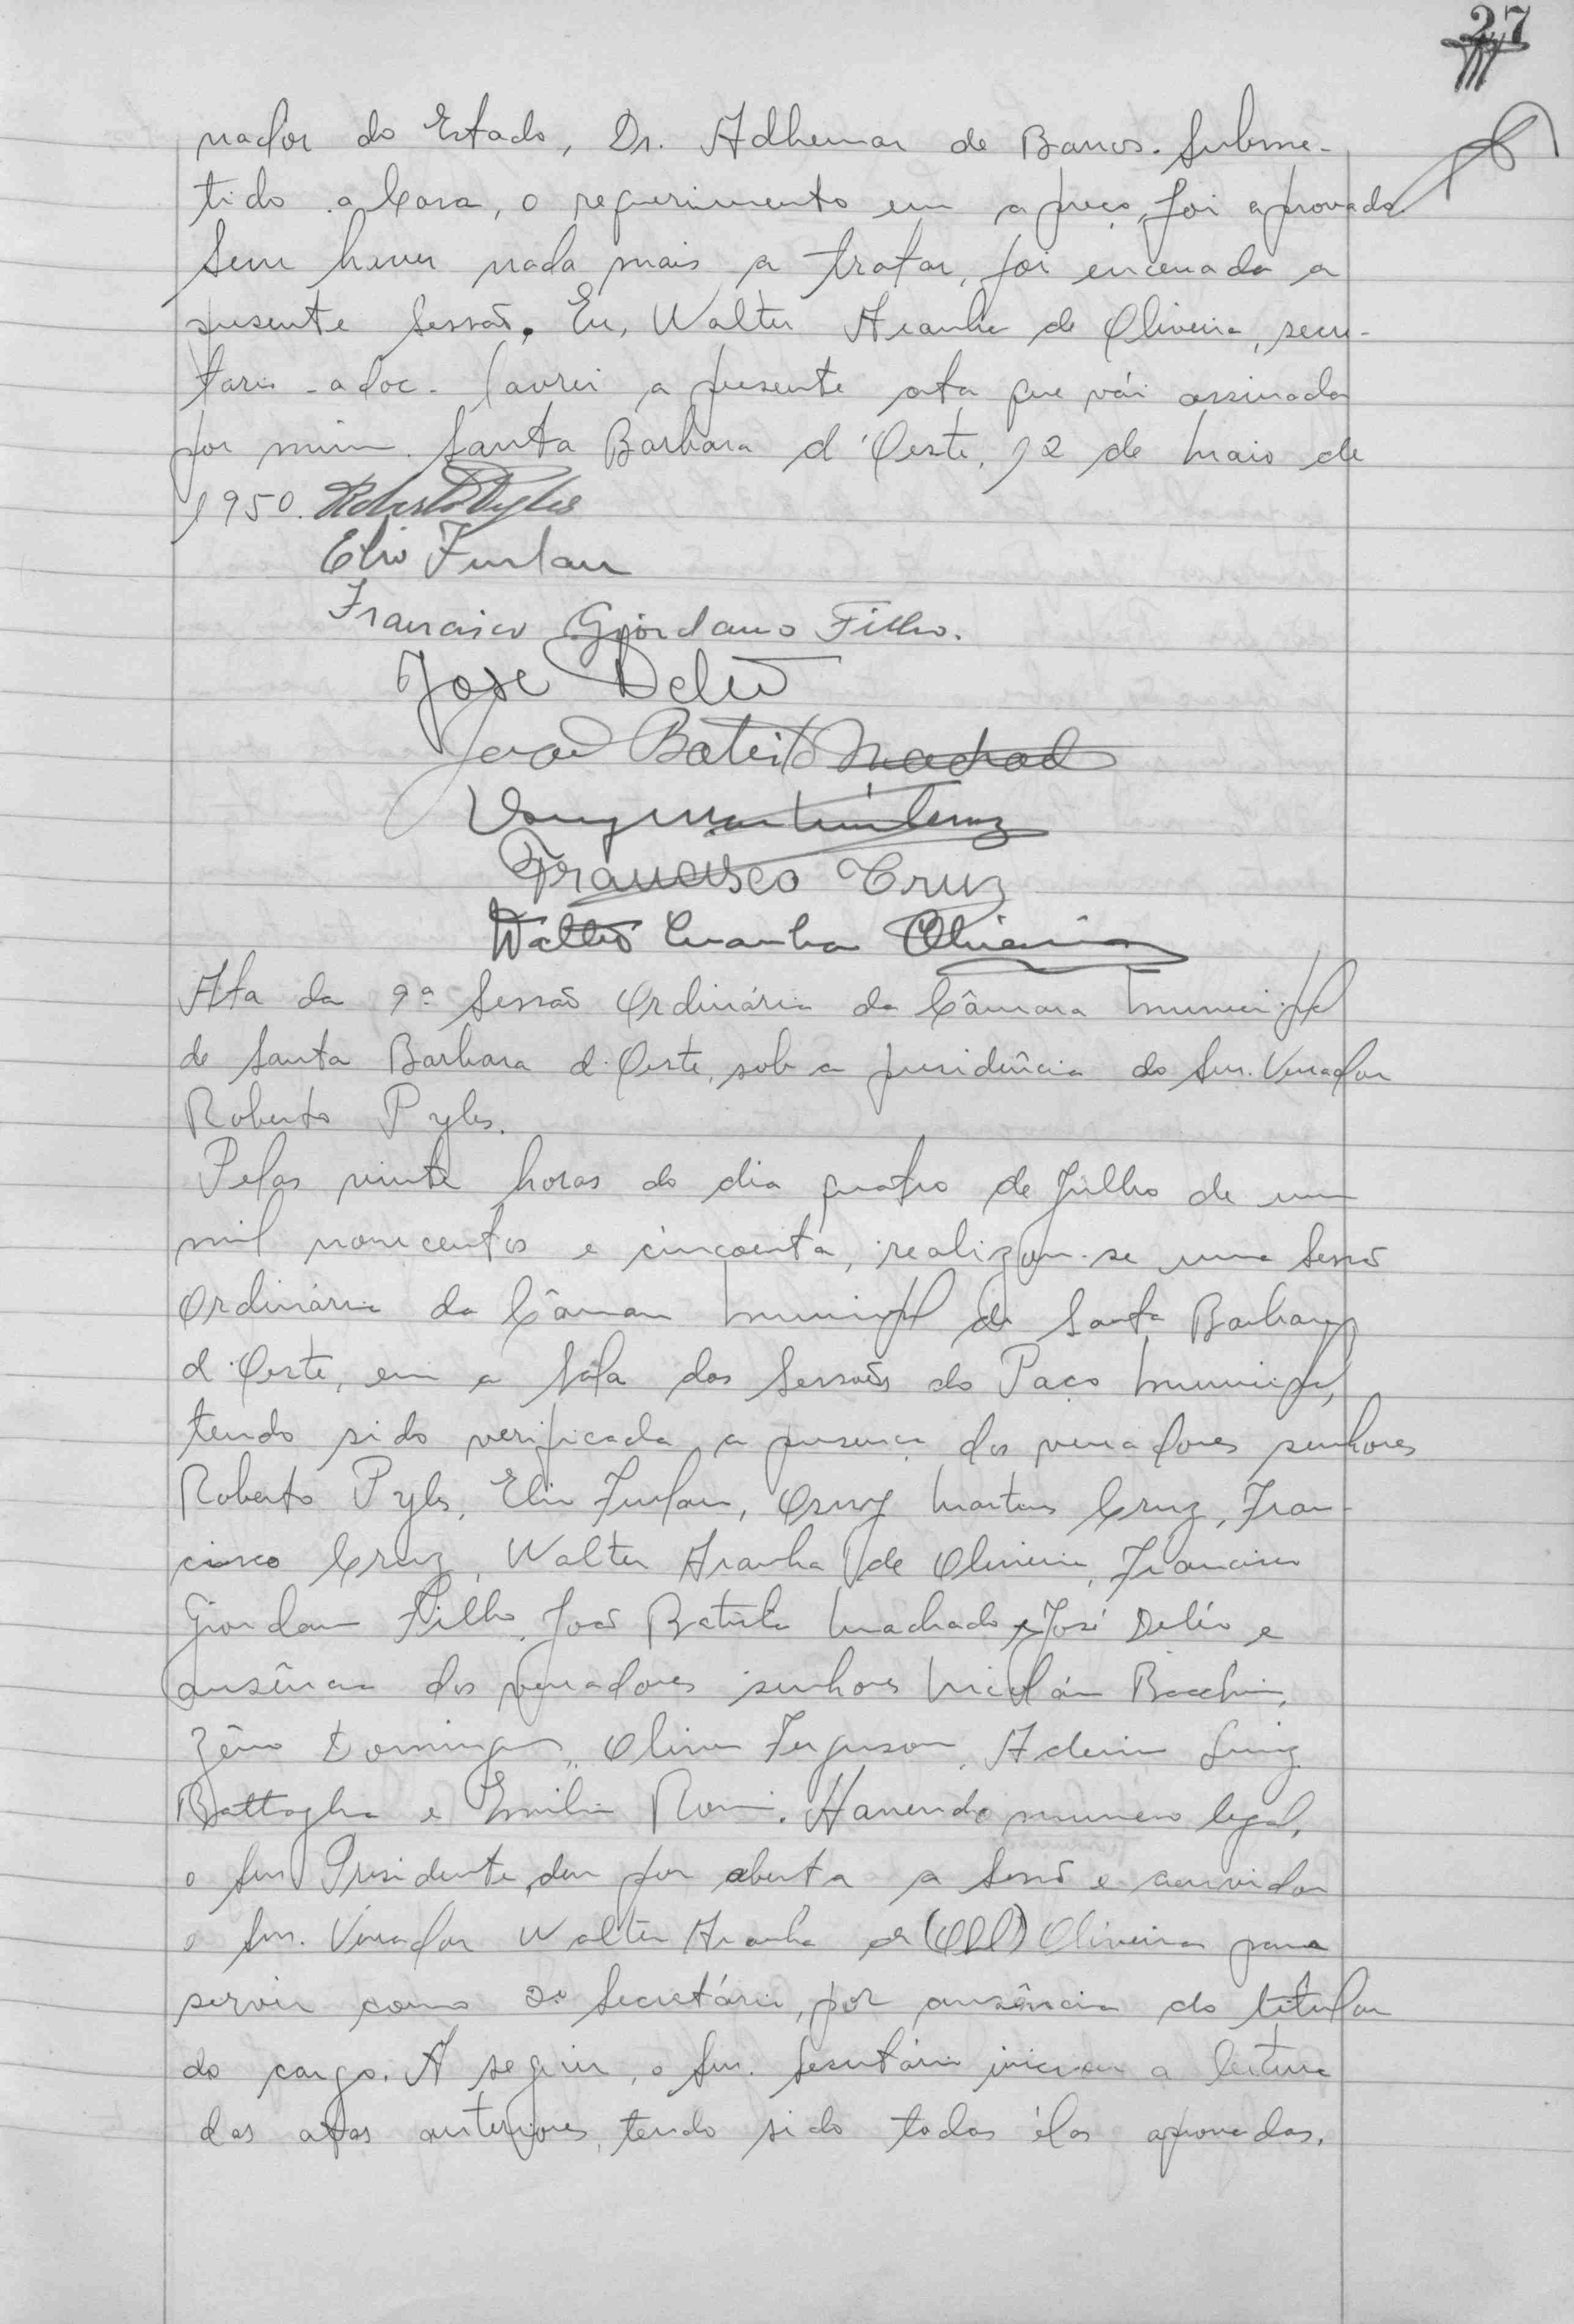 27
nador do Estado, Dr. Adhemar de Barros. Subme-
tido a Casa, o requerimento em apreço, foi aprovado.
Sem haver nada mais a tratar, foi encerrada a
presente Sessão. Eu, Walter Aranha de Oliveira, secre-
tario - adoc - lavrei a presente ata que vái assinada
por mim. Santa Barbara d'Oeste, 12 de Maio de
1950. Roberto Pyles
Elio Furlan
Francisco Giordano Filho.
José Deléo
João Batista Machado
Osny Martins Cruz
Francisco Cruz
Walter Aranha Oliveira
Ata da 9ª Sessão Ordinária da Câmara Municipal
de Santa Barbara d'Oeste, sob a presidência do Snr. Vereador
Roberto Pyles.
Pelas vinte horas do dia quatro de Julho de um
mil novecentos e cincoenta, realizou-se uma Sessão
Ordinária da Câmara Municipal de Santa Barbara
d'Oeste, em a Sala das Sessões do Paço Municipal,
tendo sido verificada a presença dos vereadores senhores
Roberto Pyles, Elio Furlan, Osny Martins Cruz, Fran-
cisco Cruz, Walter Aranha de Oliveira, Francisco
Giordano Filho, João Batista Machado e José Deléo e
ausência dos vereadores senhores Nicoláu Bacchin,
Zêno Domingues, Oliver Ferguson, Ademir Luiz
Battaglia e Emilio Romi. Havendo numero legal,
o Snr Presidente, deu por aberta a Sessão e convidou
o Snr. Vereador Walter Aranha de (Oll) Oliveira para
servir como 2º Secretário, por ausência do titular
do cargo. A seguir, o Snr. Secretário iniciou a leitura
das atas anteriores, tendo sido todas élas aprovadas.